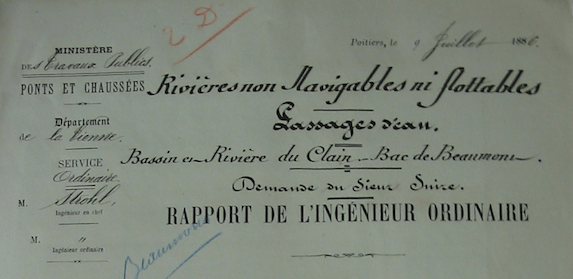 2 D
Poitiers, le 9 Juillet 1886.
MINISTÈRE
DES Travaux Publics.
PONTS ET CHAUSSÉES
Département
de la Vienne.
SERVICE
Ordinaire
M. Strohl,
Ingénieur en chef
M. "
Ingénieur ordinaire
Rivières non Navigables ni flottables
Passages d'eau.
Bassin et Rivière du Clain - Bac de Beaumont.
Demande du Sieur Suire.
RAPPORT DE L'INGÉNIEUR ORDINAIRE
Beaumont